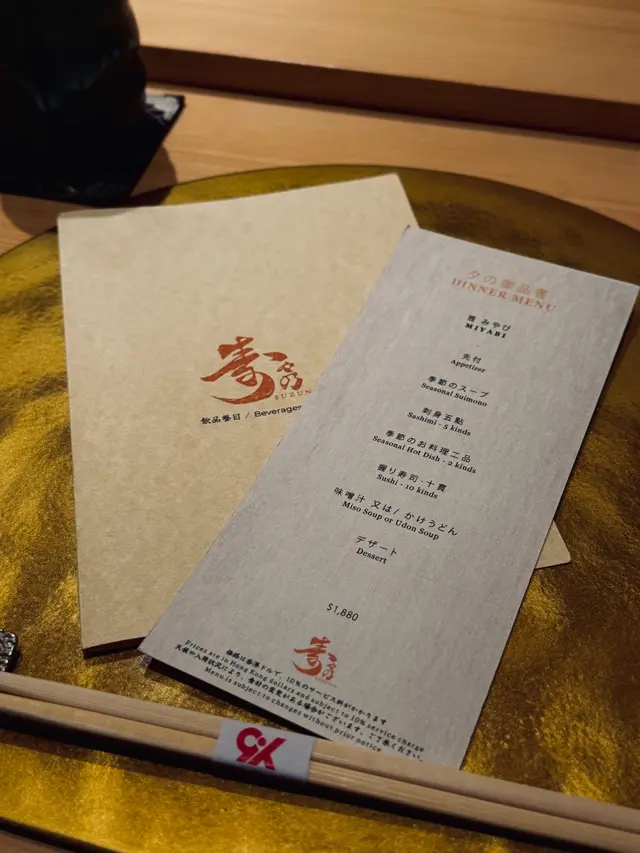 寿
SUZUN
飲品餐目 / Beverages
夕の御品書
DINNER MENU
雅 みやび
MIYABI
先付
Appetizer
季節のスープ
Seasonal Suimono
刺身五點
Sashimi - 5 kinds
季節のお料理二品
Seasonal Hot Dish - 2 kinds
握り寿司-十貫
Sushi - 10 kinds
味噌汁 又は/ かけうどん
Miso Soup or Udon Soup
デザート
Dessert
$1,880
寿
価格は香港ドルで、10%のサービス料がかかります
Prices are in Hong Kong dollars and subject to 10% service charge
天候や入荷状況により、食材の変更がある場合がございます、ご了承ください。
Menu is subject to changes without prior notice